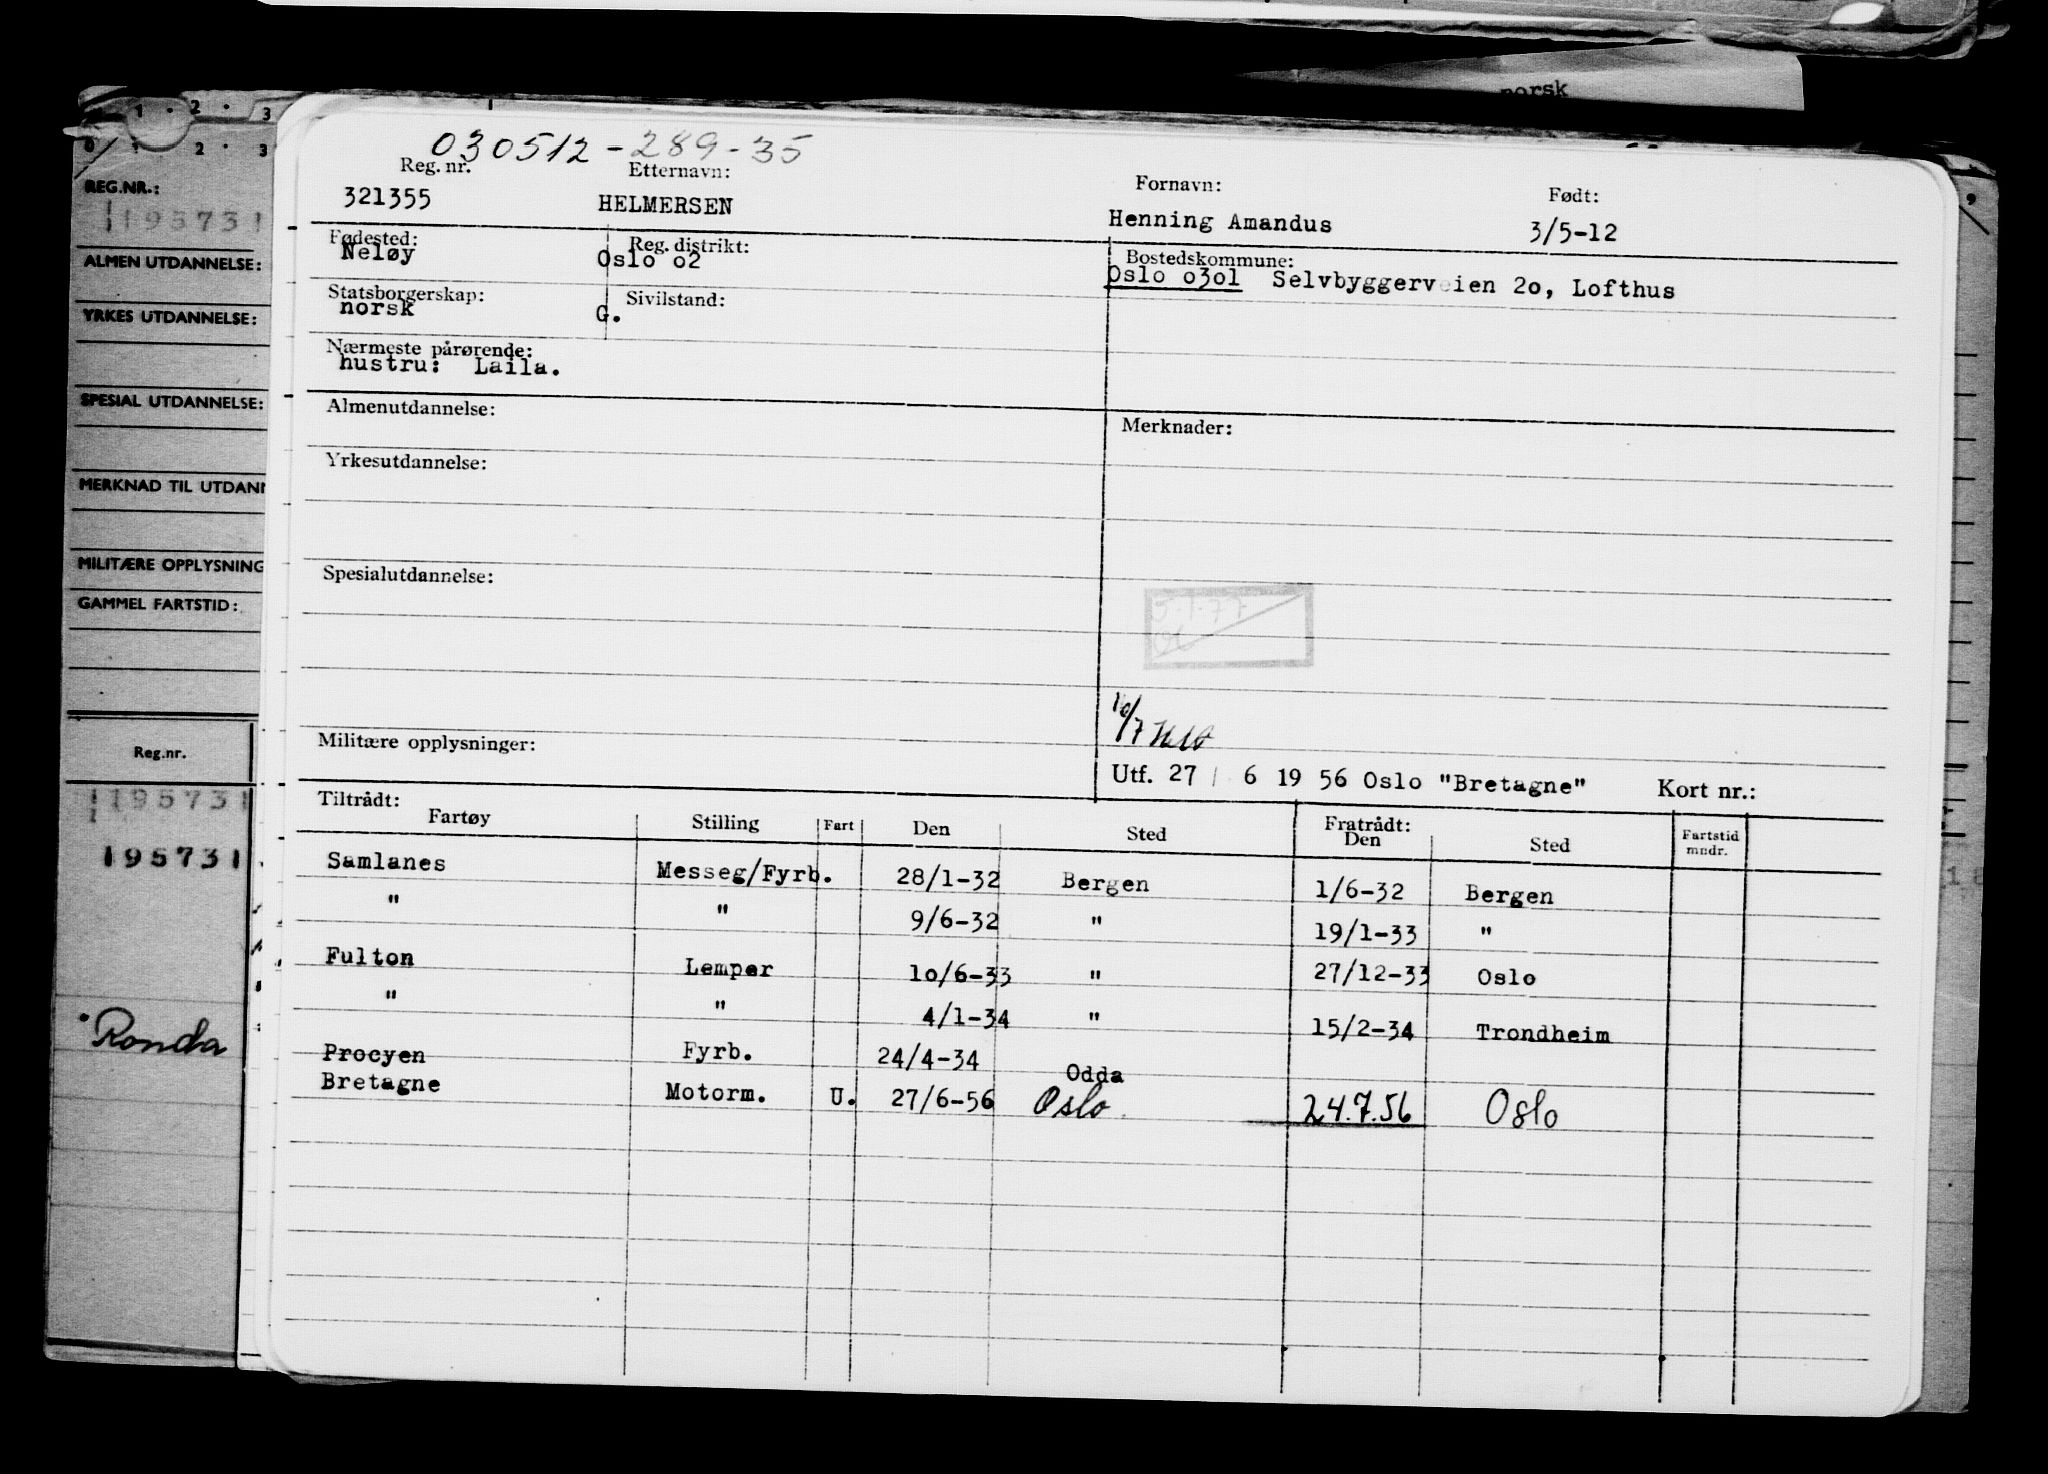 norsk
030512-289-35
Reg. nr. Etternavn: Fornavn: Født:
321355 HELMERSEN Henning Amandus 3/5-12
Fødested: Reg. distrikt: Bostedskommune:
Neløy Oslo o2 Oslo o3o1 Selvbyggerveien 2o, Lofthus
Statsborgerskap: Sivilstand:
norsk G.
Nærmeste pårørende:
hustru: Laila.
Almenutdannelse: Merknader:
Yrkesutdannelse:
Spesialutdannelse:
5.1.77
Militære opplysninger:
Utf. 27 / 6 19 56 Oslo "Bretagne" Kort nr.:
Tiltrådt: Fratrådt:
Fartøy Stilling Fart Den Sted Den Sted Fartstid mndr.
Samlanes Messeg/Fyrb. 28/1-32 Bergen 1/6-32 Bergen
" " 9/6-32 " 19/1-33 "
Fulton Lemper 1o/6-33 " 27/12-33 Oslo
" " 4/1-34 " 15/2-34 Trondheim
Procyen Fyrb. 24/4-34 Odda
Bretagne Motorm. U. 27/6-56 Oslo 24.7.56 Oslo
0 1 2 3
0 1 2 3
REG.NR.:
195731
ALMEN UTDANNELSE:
YRKES UTDANNELSE:
SPESIAL UTDANNELSE:
MERKNAD TIL UTDAN
MILITÆRE OPPLYSNING
GAMMEL FARTSTID:
Reg.nr.
195731
195731
Ronda
9